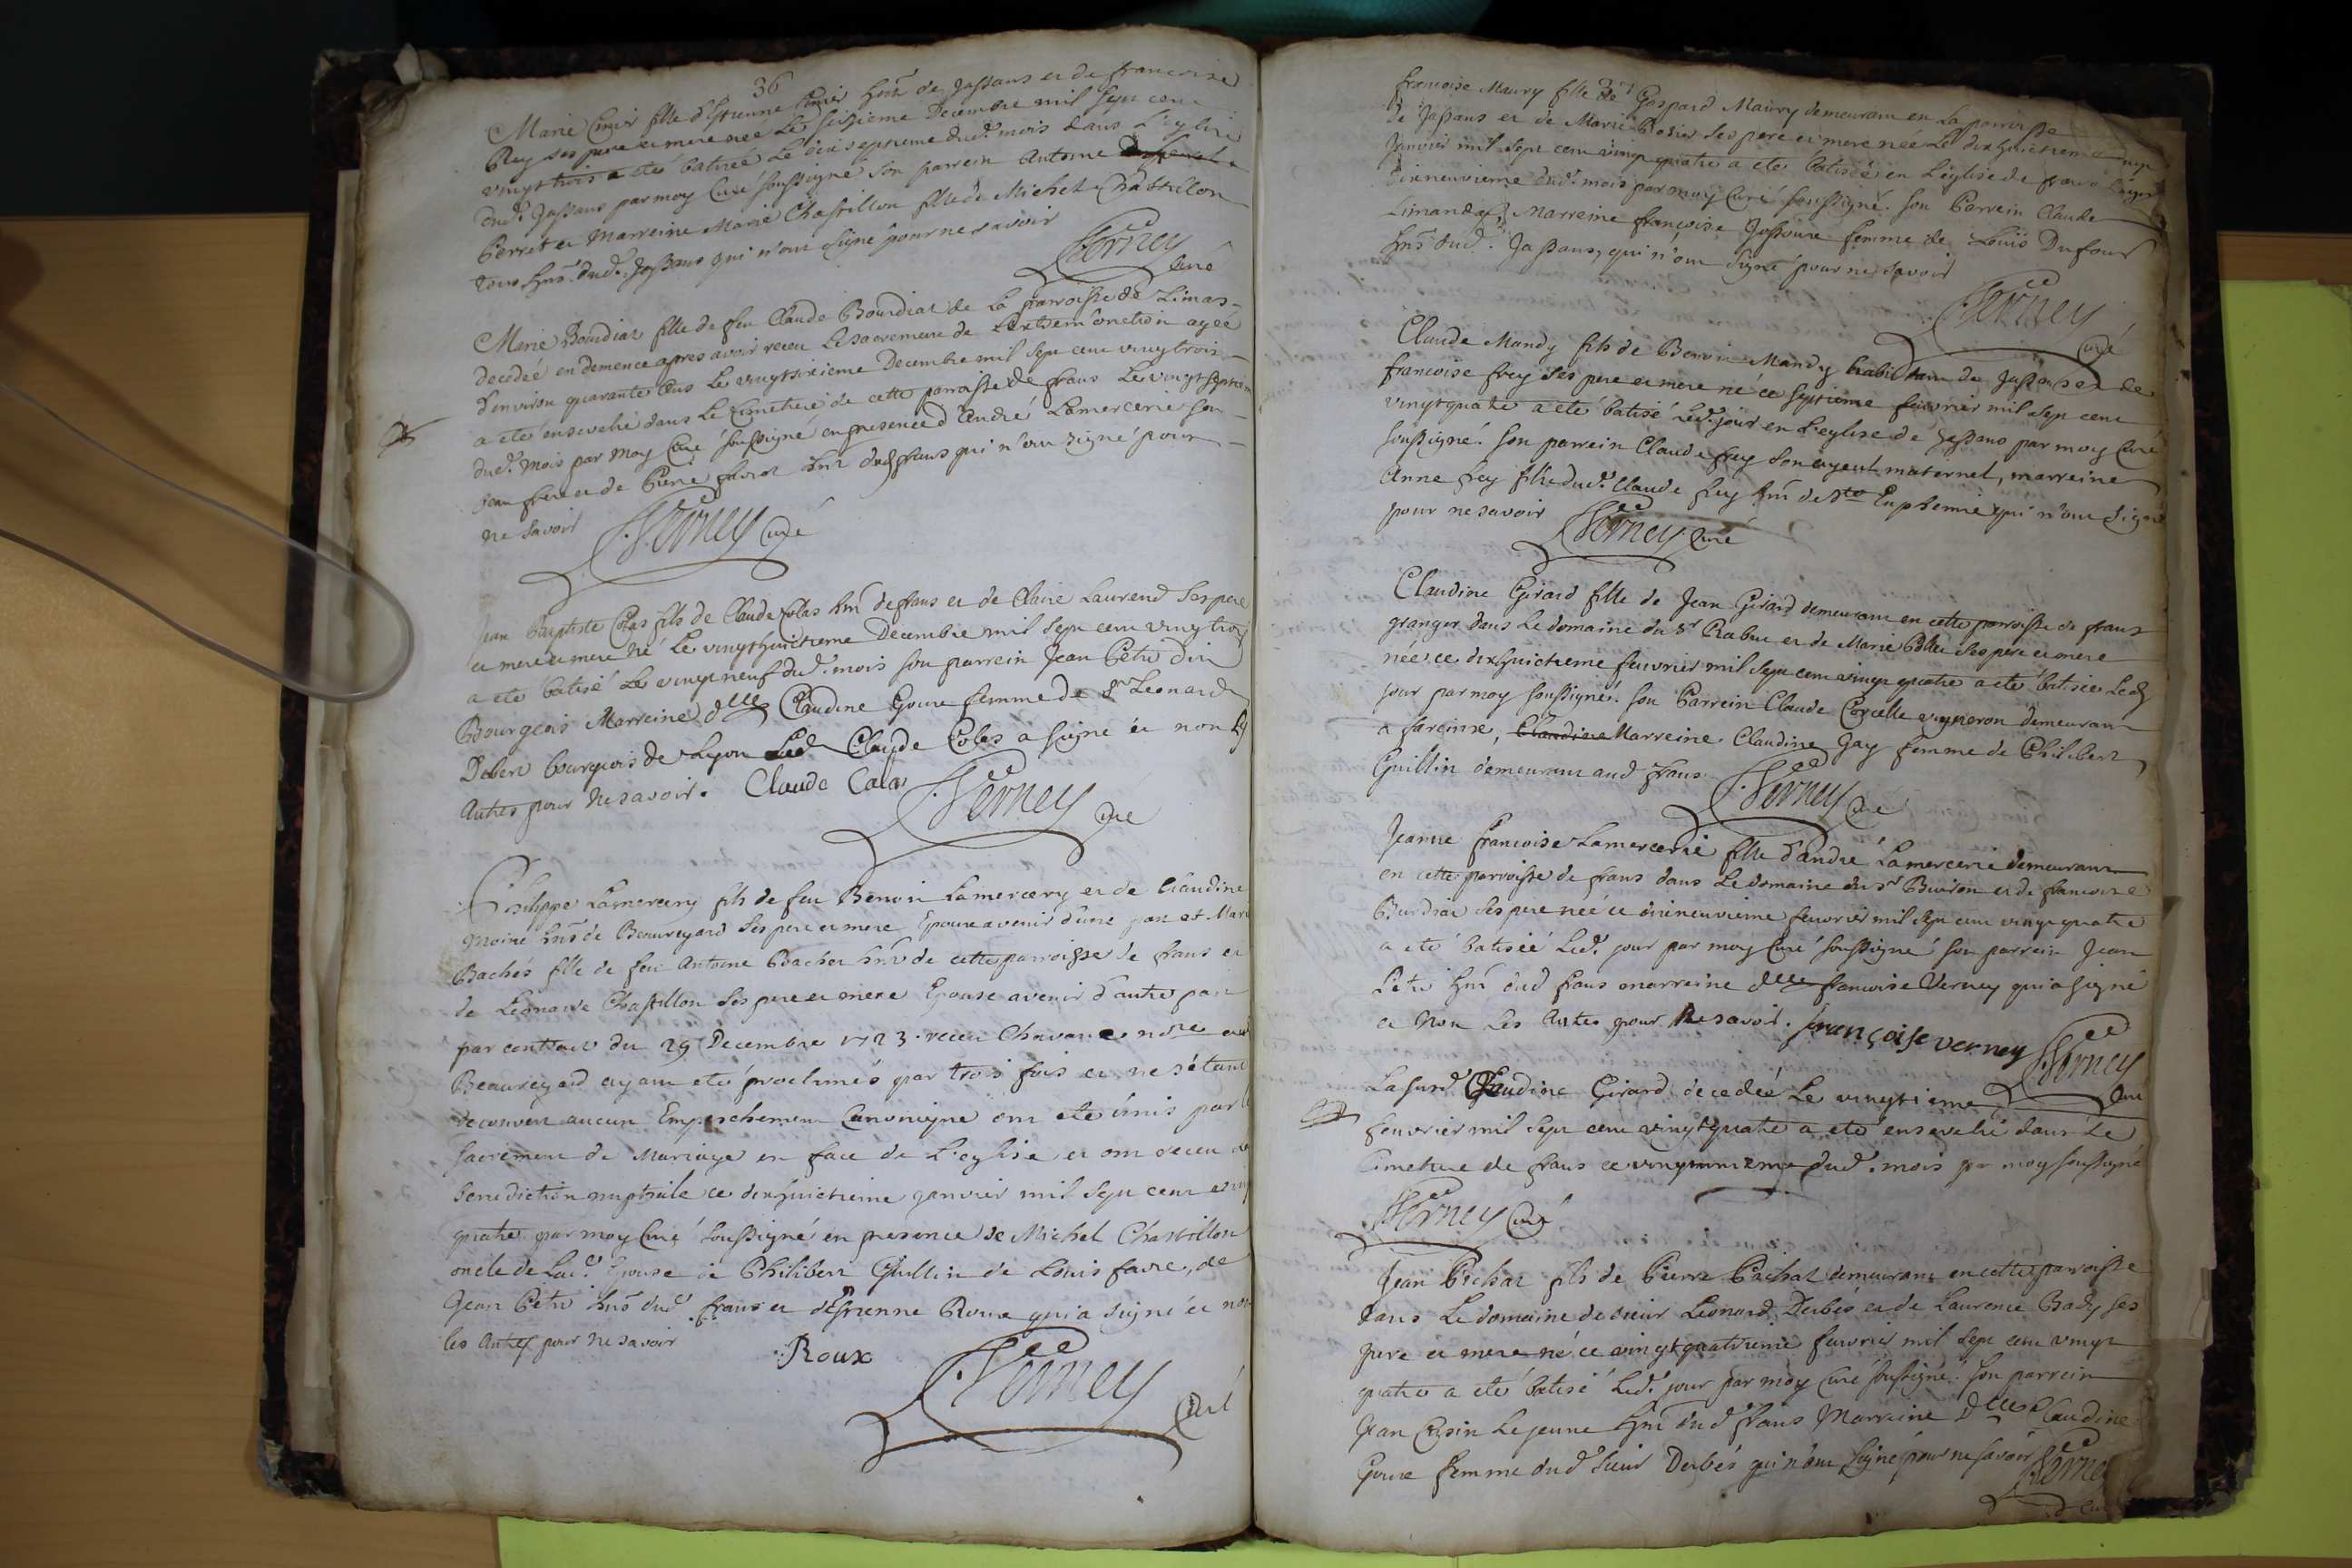 36
Marie Comis fille d'Estienne Comis hnt de Jassans et de francoise
Rey ses pere et mere née le seizieme Decembre mil sept cent
vingt trois a eté batisée le dix septieme dud. mois dans L'eglise
dud. Jassans par moy Curé soussigné son parrein Antoine
Perret et Marreine Marie Chastillon fille de Michel Chastillon
tous hns dud. Jassans qui n'ont signé pour ne savoir
J. Verney Curé
Marie Bourdiat fille de feu Claude Bourdiat de la parroisse de Limas
decedée en demence apres avoir receu le sacrement de L'extrem'onction agée
d'environ quarante ans le vingtsixieme Decembre mil sept cent vingt trois
a eté ensevelie dans le Cimetiere de cette parroisse de frans le vingtseptieme
dud. mois par moy Curé soussigné en presence d'André Lamercerie son
beau frere et de Pierre favrot hnt dud frans qui n'ont signé pour
ne savoir J. Verney Curé
Jean Baptiste Colas fils de Claude Colas hnt de frans et de Claire Laurend ses pere
et mere et mere né le vingthuictieme Decembre mil sept cent vingt trois
a eté batisé le vingt neuf dud. mois son parrein Jean Petre dit
Bourgeois Marreine dlle Claudine Goure femme de Sr Leonard
Debert bourgeois de Lyon Led Claude Colas a signé et non les
Autres pour ne savoir. Claude Calas J. Verney Curé
Philippe Lamercery fils de feu Benoit Lamercery et de Claudine
Moine hns de Beauregard ses pere et mere Epoux avenir d'une part et Marie
Bachés fille de feu Antoine Bacher hnt de cette parroisse de frans et
de Leonarde Chastillon ses pere et mere Epouse avenir d'autre part
par contract du 29 Decembre 1723. receu Chavane nore aud
Beauregard ayant eté proclamés par trois fois et ne s'étant
decouvert aucun Empeschement Canonique ont eté unis par le
sacrement de Mariage en face de L'eglise et ont receu la
benediction nuptiale ce dixhuictieme janvier mil sept cent vingt
quatre par moy Curé soussigné en presence de Michel Chastillon
oncle de lad. Epouse de Philibert Guillin de Louis favre, de
Jean Petre hns dud. frans et d'Estienne Roux qui a signé et non
les Autres pour ne savoir Roux
J. Verney Curé
37
francoise Maury fille de Gaspard Maury demeurant en la parroisse
de Jassans et de Marie Rosier ses pere et mere née le dixhuictieme
Janvier mil sept cent vingt quatre a eté batisée en L'eglise de frans le
dixneuvieme dud. mois par moy Curé soussigné. son Parrein Claude
Limandas, Marreine françoise Jassoure femme de Louis Dufour
hns dud. Jassans, qui n'ont signé pour ne savoir
J. Verney Curé
Claude Mandy fils de Benoit Mandy habitant de Jassans et de
francoise frey ses pere et mere né ce septieme feuvrier mil sept cent
vingtquatre a eté batisé led. jour en L'eglise de Jassans par moy Curé
soussigné. son parrein Claude frey son ayeul maternel, marreine
Anne frey fille dud. Claude frey hnt de Ste Euphemie qui n'ont signé
pour ne savoir J. Verney Curé
Claudine Girard fille de Jean Girard demeurant en cette parroisse de frans
granger dans le domaine du Sr Rabut et de Marie Pollet ses pere et mere
née ce dixhuictieme feuvrier mil sept cent vingt quatre a eté batisée led
jour par moy soussigné. son Parrein Claude Corcelle vigneron demeurant
a fareins, Claudine Marreine Claudine Gay femme de Philibert
Guillin demeurant aud frans J. Verney Curé
Jeanne francoise Lamercerie fille d'andré Lamercerie demeurant
en cette parroisse de frans dans le domaine du Sr Buiron et de francoise
Burdiat ses pere née ce dixneuvieme feuvrier mil sept cent vingt quatre
a eté batisée led. jour par moy Curé soussigné son parrein Jean
Petre hnt dud frans marreine dlle francoise Verney qui a signé
et non les Autres pour ne savoir. françoise verney J. Verney
Curé
La susd. Claudine Girard decedée le vingtieme
feuvrier mil sept cent vingtquatre a eté ensevelie dans le
Cimetiere de frans ce vingtunieme dud. mois par moy soussigné
J. Verney Curé
Jean Pichat fils de Pierre Pichat demeurant en cette parroisse
dans le domaine de sieur Leonard Derbés et de Laurence Bady ses
pere et mere né ce vingtquatrieme feuvrier mil sept cent vingt
quatre a eté batisé led. jour par moy Curé soussigné. son parrein
Jean Cusin le jeune hnt dud frans Marreine Dlle Claudine
Goure femme dud sieur Derbés qui n'ont signé pour ne savoir J. Verney
Curé